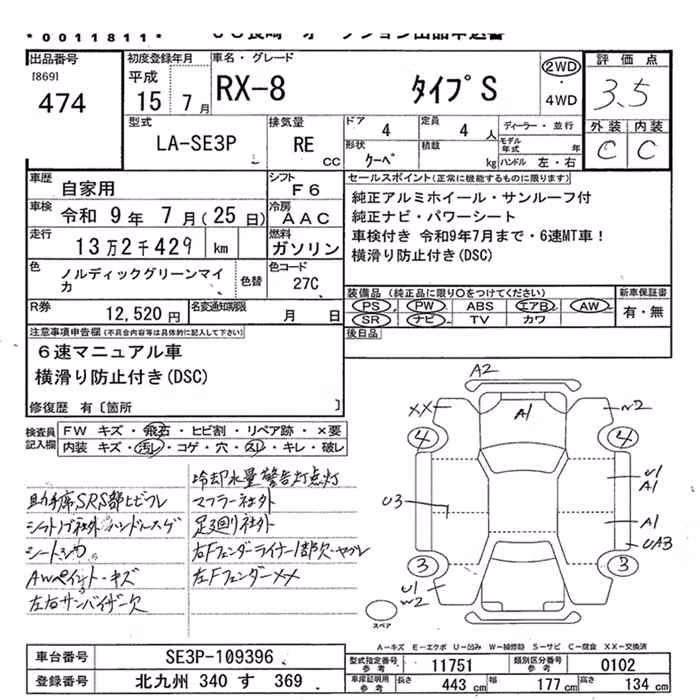 *0011811*
出品番号
[869]
474
初度登録年月
平成
15年7月
車名・グレード
RX-8 タイプS
2WD
・
4WD
評価点
3.5
外装 内装
C C
型式
LA-SE3P
排気量
RE
CC
ドア
4
定員
4人
形状
クーペ
積載
kg
ディーラー・並行
モデル年式
年
ハンドル 左・右
車歴
自家用
シフト
F6
車検
令和 9年 7月(25日)
冷房
AAC
走行
13万2千429 km
燃料
ガソリン
色
ノルディックグリーンマイカ
色替
色コード
27C
R券
12,520円
名変通知期限
月 日
セールスポイント(正常に機能するものに限ります)
純正アルミホイール・サンルーフ付
純正ナビ・パワーシート
車検付き 令和9年7月まで・6速MT車!
横滑り防止付き(DSC)
装備品(純正品に限り○をつけてください)
PS PW ABS エアB AW
SR ナビ TV カワ
新車保証書
有・無
後日品
注意事項申告欄(不具合内容等は具体的に記入して下さい)
6速マニュアル車
横滑り防止付き(DSC)
修復歴 有〔箇所 〕
検査員記入欄
FW キズ・飛石・ヒビ割・リペア跡・×要
内装 キズ・汚レ・コゲ・穴・スレ・キレ・破レ
冷却水量警告灯点灯
助手席SRS部ヒビワレ
マフラー社外
シフトノブ社外 ハンドルスレ
足廻り社外
右Fフェンダーライナー1部欠・ヤブレ
AWペイント・キズ
左Fフェンダー××
左右サンバイザー欠
A2
××
A1
W2
4
4
U1
A1
U3
A1
UA3
3
3
U1
W2
スペア
A-キズ E-エクボ U-凹み W-補修跡 S-サビ C-腐食 XX-交換済
車台番号
SE3P-109396
登録番号
北九州 340 す 369
型式指定番号
参考
11751
類別区分番号
参考
0102
車庫証明用
参考
長さ
443 cm
幅
177 cm
高さ
134 cm